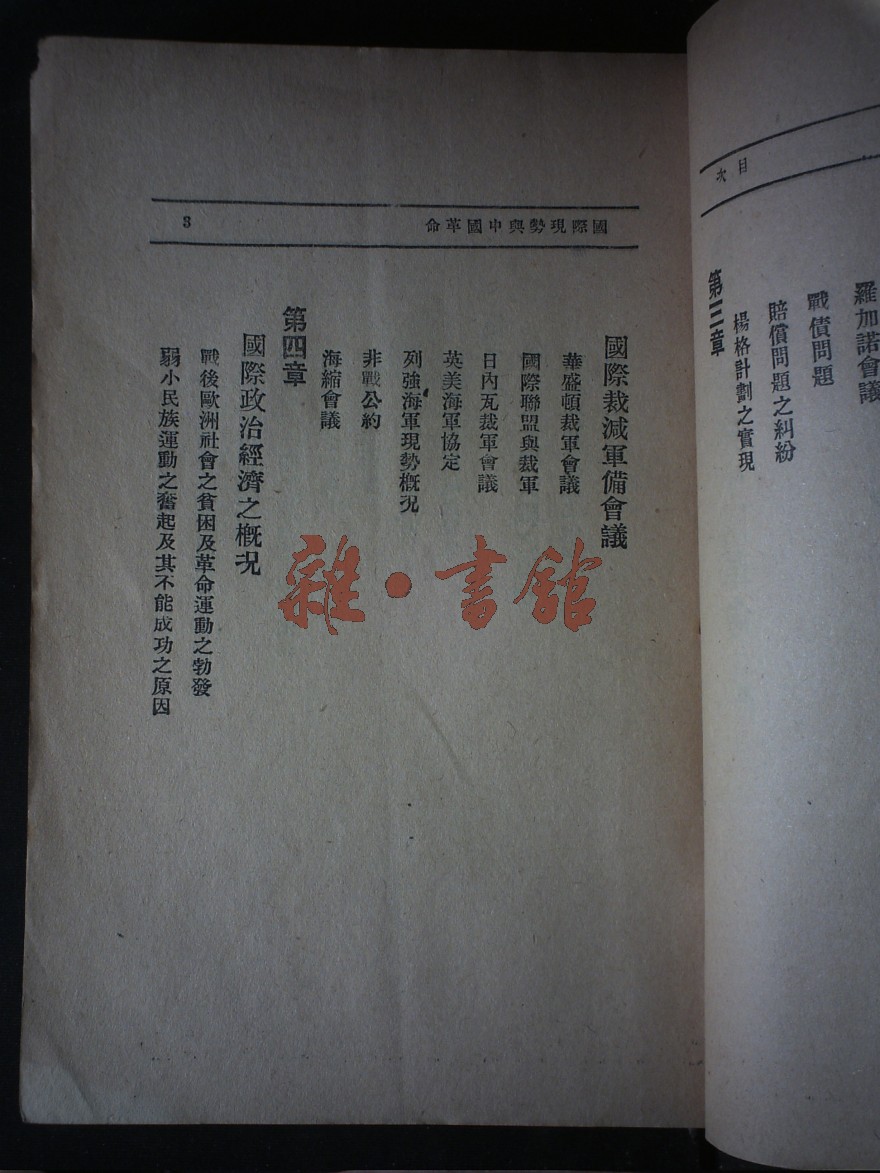 目次
羅加諾會議
戰債問題
賠償問題之糾紛
楊格計劃之實現
第三章
國際現勢與中國革命
3
國際裁減軍備會議
華盛頓裁軍會議
國際聯盟與裁軍
日內瓦裁軍會議
英美海軍協定
列強海軍現勢概況
非戰公約
海縮會議
第四章
國際政治經濟之概況
戰後歐洲社會之貧困及革命運動之勃發
弱小民族運動之奮起及其不能成功之原因
雜·書館